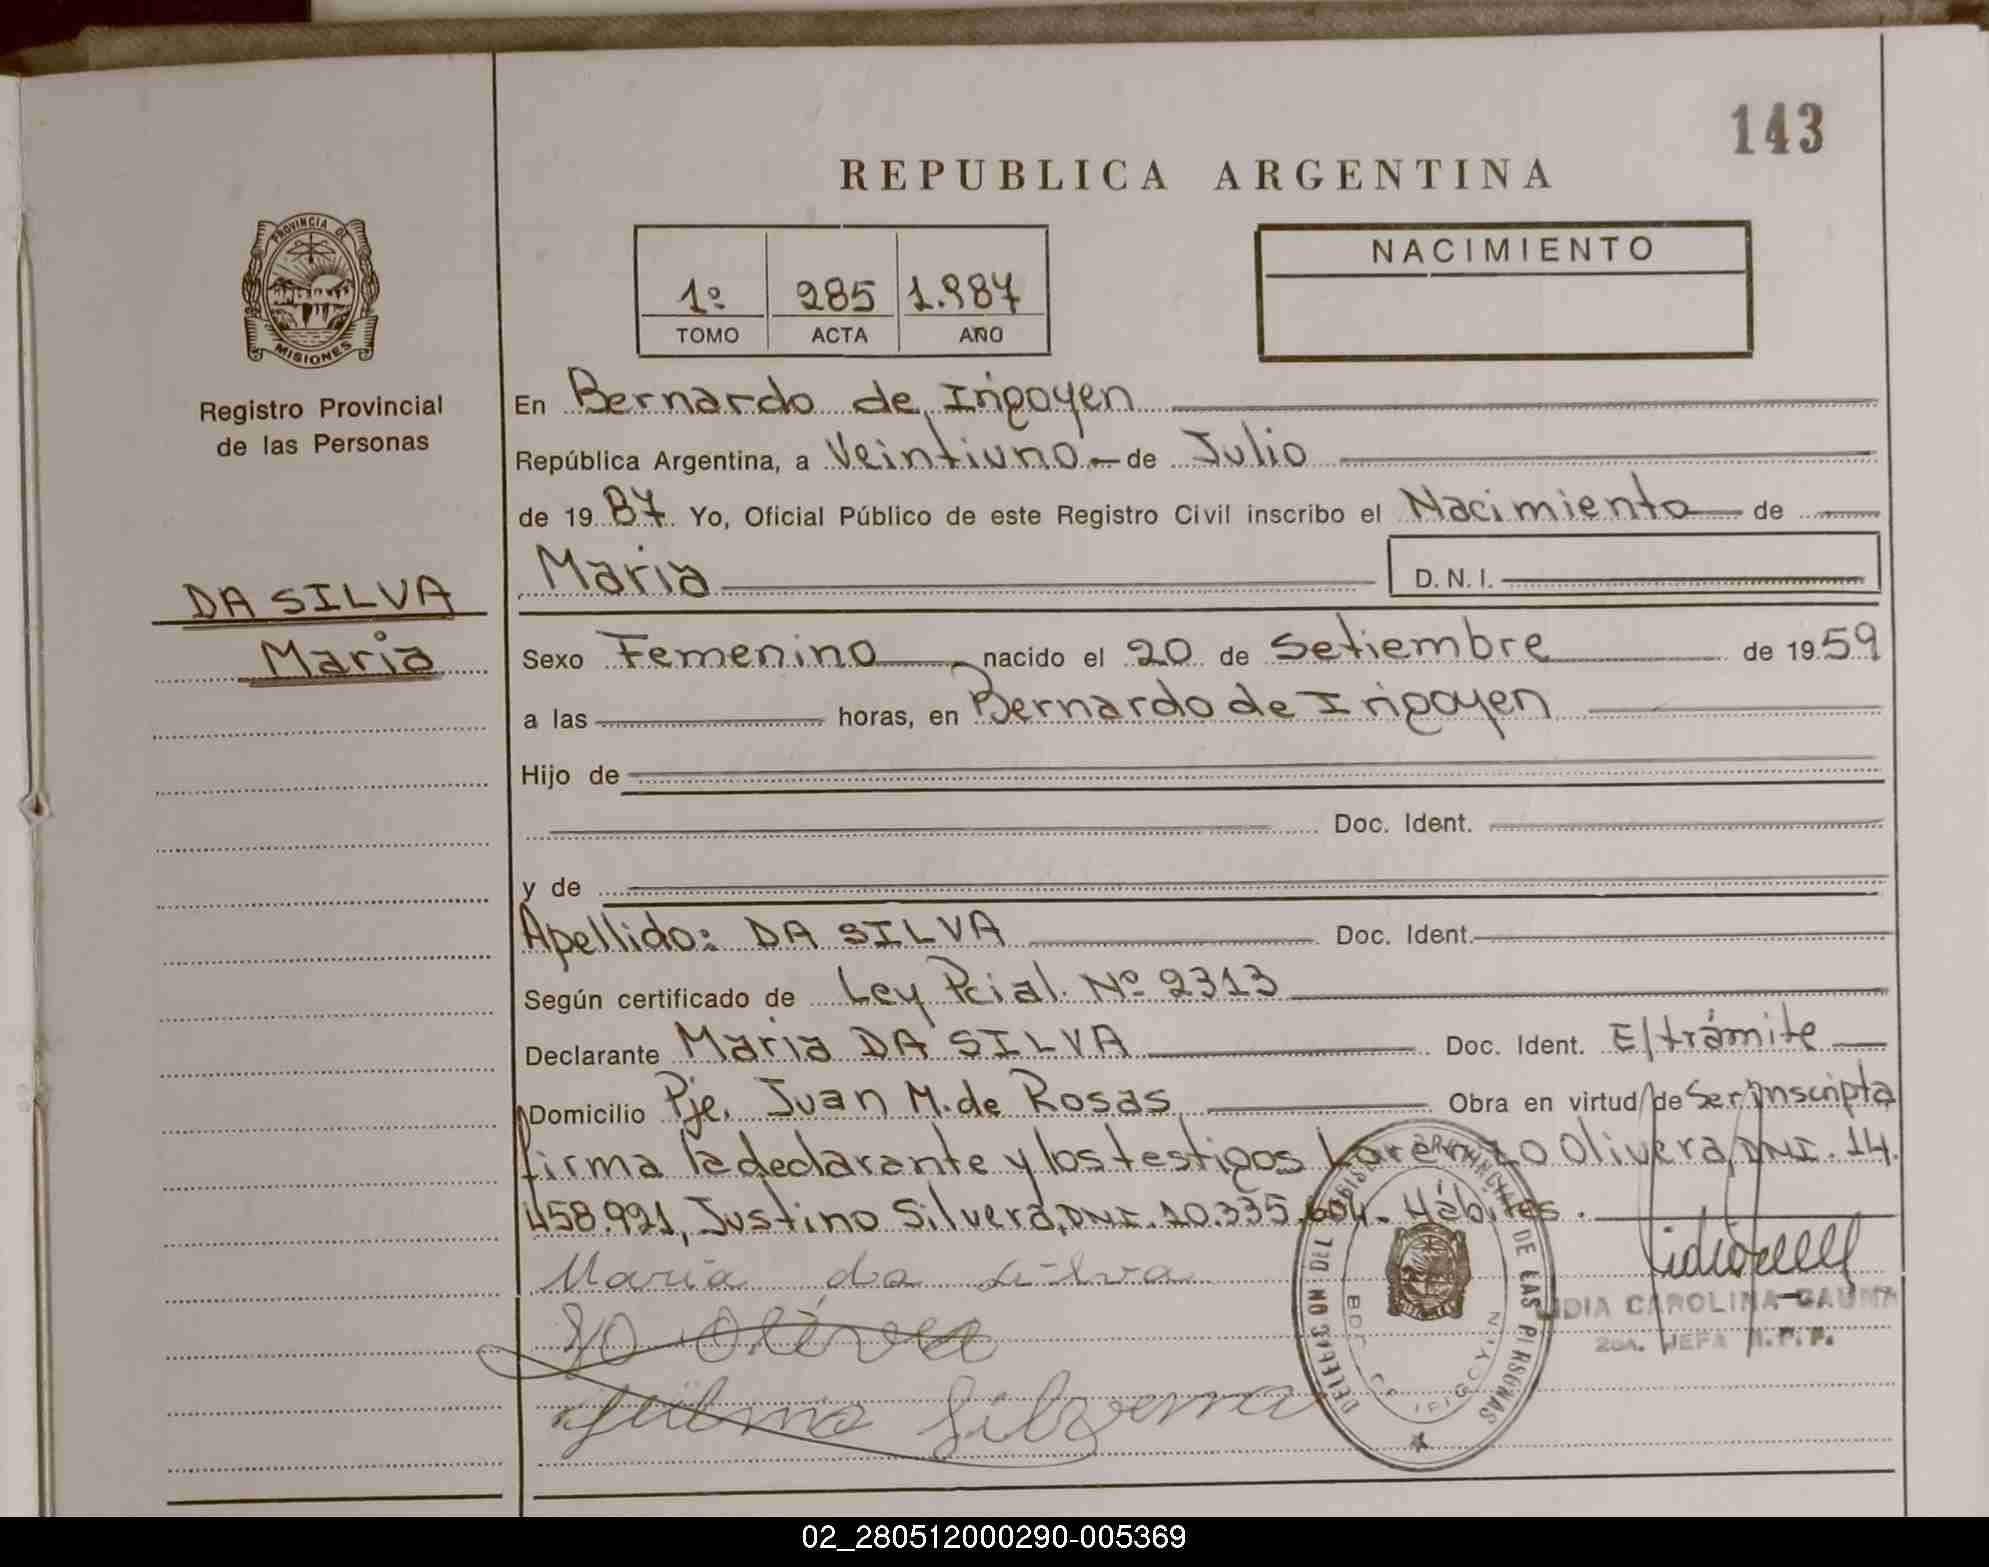 143
REPUBLICA ARGENTINA
PROVINCIA DE
MISIONES
Registro Provincial
de las Personas
1º 285 1.987
TOMO ACTA AÑO
NACIMIENTO
En Bernardo de Irigoyen
República Argentina, a Veintiuno de Julio
de 19 87. Yo, Oficial Público de este Registro Civil inscribo el Nacimiento de
DA SILVA
Maria
Maria D.N.I.
Sexo Femenino, nacido el 20 de Setiembre de 19 59
a las horas, en Bernardo de Irigoyen
Hijo de
Doc. Ident.
y de
Apellido: DA SILVA Doc. Ident.
Según certificado de Ley Pcial. Nº 2313
Declarante Maria DA SILVA Doc. Ident. E/trámite
Domicilio Pje. Juan M. de Rosas Obra en virtud de Ser inscripta
firma la declarante y los testigos Lorenzo Olivera, DNI. 14.
458.921, Justino Silvera, DNI. 10.335.604. Hábiles.
Maria da Silva
Silvera
DELEGACION DEL REGISTRO PROVINCIAL DE LAS PERSONAS
BDO. DE IRIGOYEN
LIDIA CAROLINA GAUNA
2da. JEFA R.P.P.
02_280512000290-005369